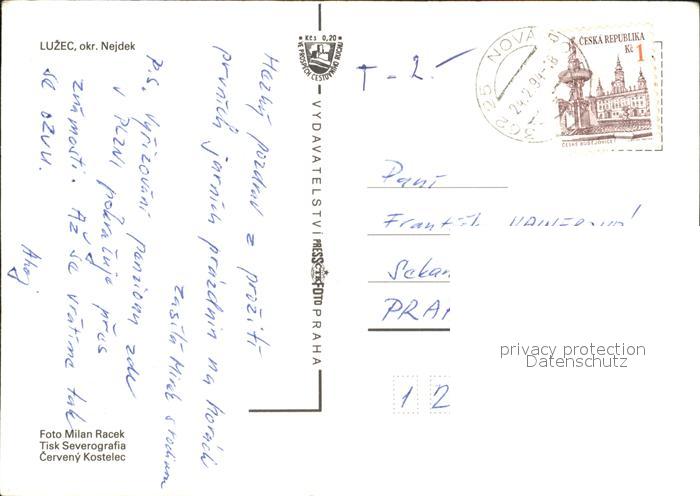 LUŽEC, okr. Nejdek
Hezký pozdrav z prožití
prvních jarních prázdnin na horách
zasílá Mirek s rodinou
P.S. Vyřizování penzionu zde
v Plzni pokračuje přes
známosti. Až se vrátíme tak
se ozvu.
Ahoj
Foto Milan Racek
Tisk Severografia
Červený Kostelec
Kčs 0,20
VE PROSPĚCH CESTOVNÍHO RUCHU
VYDAVATELSTVÍ PRESSFOTO PRAHA
ČTK
T - 2.-
30225 NOVÁ
24.2.94-18
ČESKÁ REPUBLIKA
Kč 1
ČESKÉ BUDĚJOVICE
Paní
Františk
Sekan
PRA
privacy protection
Datenschutz
1 2